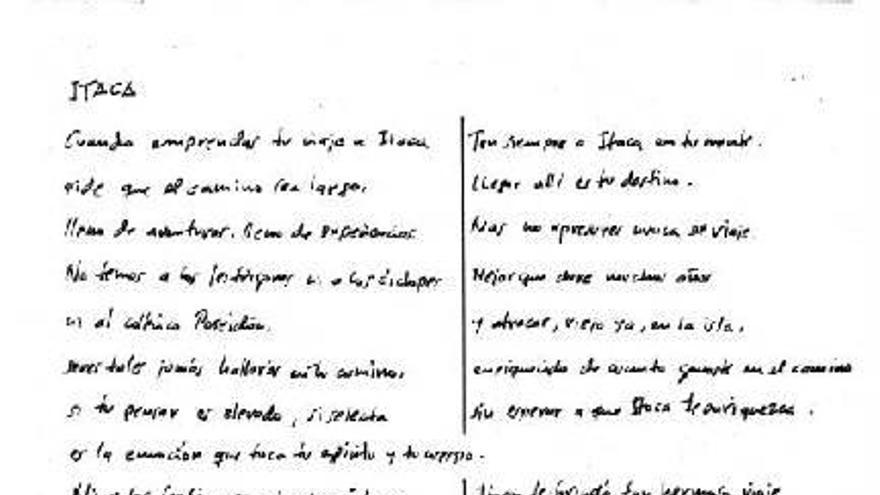 ITACA
Cuando emprendas tu viaje a Itaca
pide que el camino sea largo,
lleno de aventuras, lleno de experiencias.
No temas a los lestrigones ni a los cíclopes
ni al colérico Poseidón,
seres tales jamás hallarás en tu camino,
si tu pensar es elevado, si selecta
es la emoción que toca tu espíritu y tu cuerpo.
Ni a los
Ten siempre a Itaca en tu mente.
Llegar allí es tu destino.
Mas no apresures nunca el viaje.
Mejor que dure muchos años
y atracar, viejo ya, en la isla,
enriquecido de cuanto ganaste en el camino
sin esperar a que Itaca te enriquezca.
Itaca te brindó tan hermoso viaje